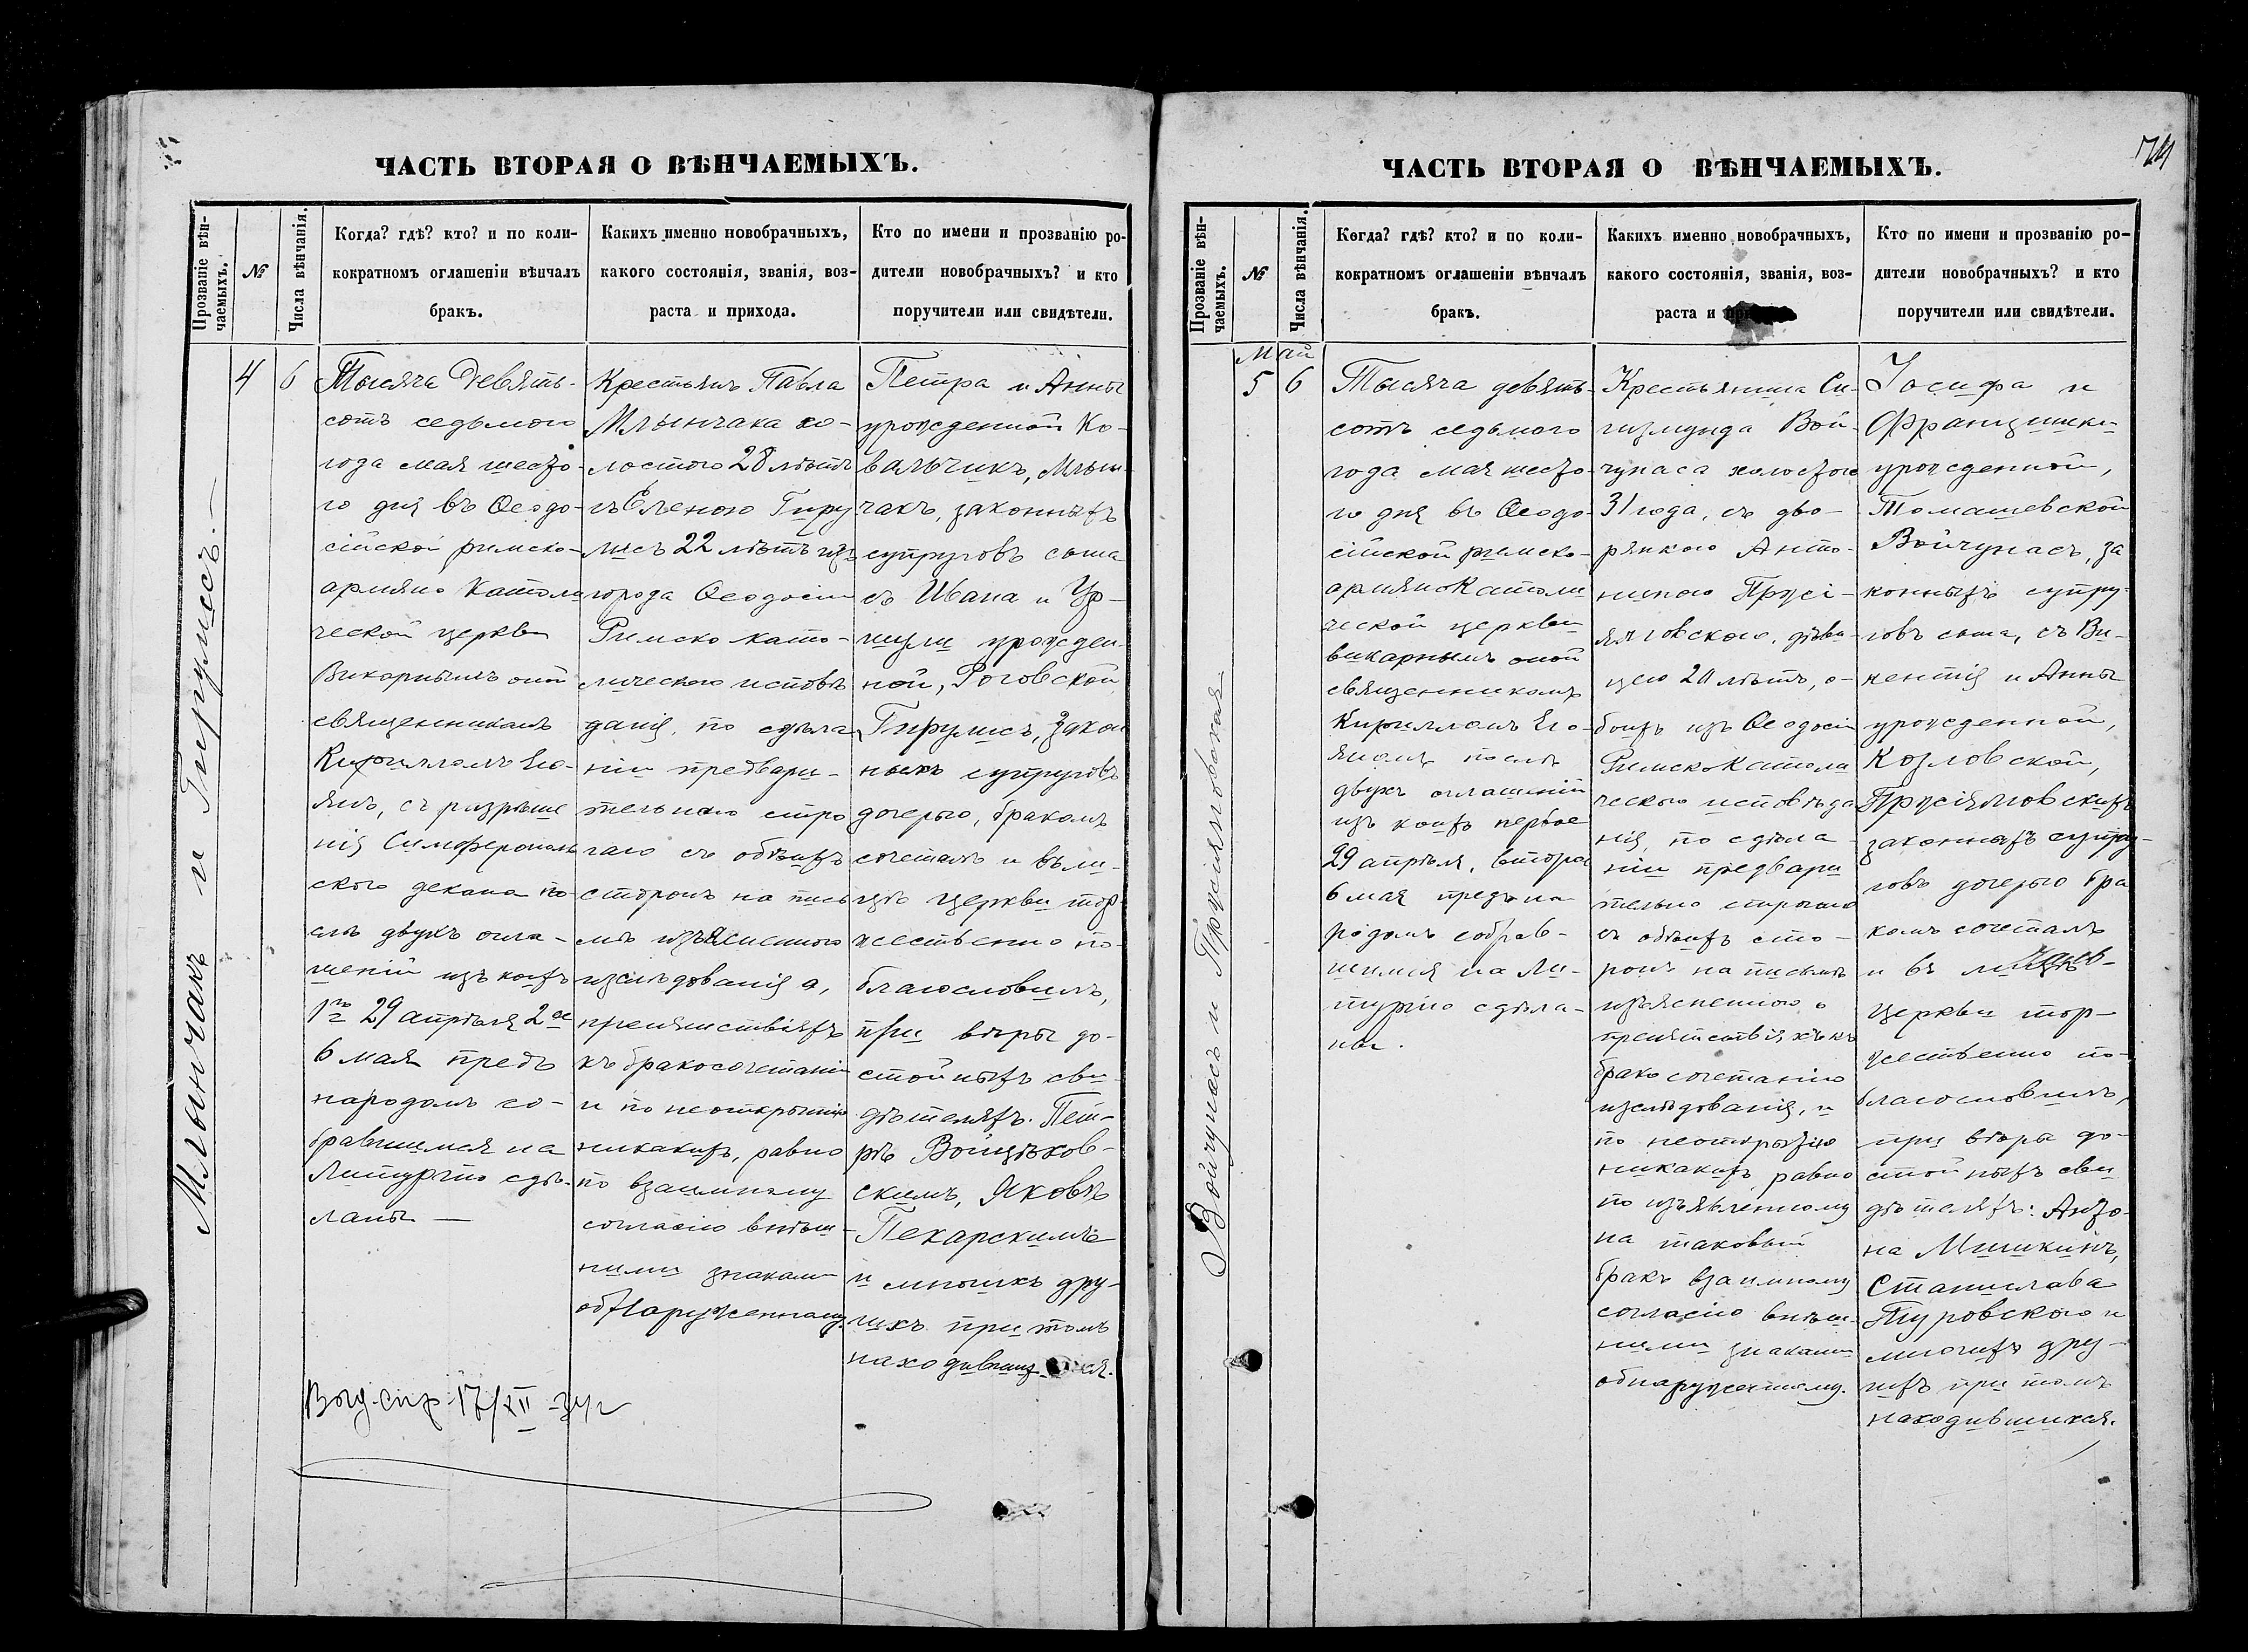 ЧАСТЬ ВТОРАЯ О ВѢНЧАЕМЫХЪ.
Прозваніе вѣн-
чаемыхъ.
№
Числа вѣнчанія.
Когда? гдѣ? кто? и по коли-
кократномъ оглашеніи вѣнчалъ
бракъ.
Какихъ именно новобрачныхъ,
какого состоянія, званія, воз-
раста и прихода.
Кто по имени и прозванію ро-
дители новобрачныхъ? и кто
поручители или свидѣтели.
Млынчакъ и Гирулисъ.—
4
6
Тысяча девять-
сотъ седьмого
года мая шесто-
го дня въ Ѳеодо-
сійской римско-
армяно Католи
ческой церкви
Викарнымъ оной
священникомъ
Кирилломъ Его-
яномъ, съ разрѣше
нія Симферополь
скаго декана по-
слѣ двухъ огла-
шеній изъ коихъ
1ое 29 апрѣля 2ое
6 мая предъ
народомъ со-
бравшемся на
Литургію сдѣ-
ланы —
Выд. спр. 17/XII
Крестьянъ Павла
Млынчака хо-
лостого 28 лѣтъ
съ Еленою Гиру
лисъ 22 лѣтъ изъ
города Ѳеодосіи
Римско като-
лическаго исповѣ
данія, по сдѣла
ніи предвари-
тельнаго стро
гаго съ обѣихъ
сторонъ на пись
мѣ изъясненнаго
изслѣдованія о,
препятствіяхъ
къ бракосочетанію
и по неоткрытію
никакихъ, равно
по взаимному
согласію внѣш-
ними знаками
обнаруженному.
Петра и Анны
урожденной Ко-
вальчикъ, Млын
чакъ, законныхъ
супруговъ сына
съ Ивана и Ур-
шули урожден-
ной, Роговской
Гирулисъ, закон
ныхъ супруговъ
дочерью, бракомъ
сочеталъ и въ ли-
цѣ церкви тор-
жественно по-
благословилъ,
при вѣры до-
стойныхъ сви-
дѣтеляхъ. Пет-
рѣ Войцѣхов-
скимъ, Яковѣ
Пекарскимъ
и многихъ дру-
гихъ при томъ
находившихся.
74
ЧАСТЬ ВТОРАЯ О ВѢНЧАЕМЫХЪ.
Прозваніе вѣн-
чаемыхъ.
№
Числа вѣнчанія.
Когда? гдѣ? кто? и по коли-
кократномъ оглашеніи вѣнчалъ
бракъ.
Какихъ именно новобрачныхъ,
какого состоянія, званія, воз-
раста и
Кто по имени и прозванію ро-
дители новобрачныхъ? и кто
поручители или свидѣтели.
Войчунасъ и Прусіянговская
Май
5
6
Тысяча девять-
сотъ седьмого
года мая шесто-
го дня въ Ѳеодо-
сійской римско-
армяноКатоли
ческой церкви
викарнымъ оной
священникомъ
Кирилломъ Его-
яномъ послѣ
двухъ оглашеній
изъ коихъ первое
29 апрѣля, второе
6 мая предъ на-
родомъ собрав-
шимся на Ли-
тургію сдѣла-
ны.
Крестьянина Си-
гизмунда Вой-
чунаса холостого
31 года, съ дво-
рянкою Анто-
ниною Прусі-
янговскою, дѣви-
цею 20 лѣтъ, о-
боихъ изъ Ѳеодосіи
РимскоКатоли
ческаго исповѣда
нія, по сдѣла-
ніи предвари
тельно строгаго
съ обѣихъ сто-
ронъ на письмѣ
изъясненнаго о
препятствіяхъ къ
брако сочетанію
изслѣдованія, и
по неоткрытію
никакихъ равно
по изъявленному
на таковый
бракъ взаимному
согласію внѣш-
ними знаками
обнаруженному.
Іосифа и
Францишки
урожденной,
Томашевской
Войчунасъ, за
конныхъ супру-
говъ сына, съ Ви-
кентія и Анны
урожденной,
Козловской,
Прусіянговскихъ
законныхъ супру-
говъ дочерью бра
комъ сочеталъ
и въ лицѣ
церкви тор-
жественно по-
благословилъ,
при вѣры до-
стойныхъ сви
дѣтеляхъ: Анто-
на Мишкинъ,
Станислава
Туровского и
многихъ дру-
гихъ при томъ
находившихся.